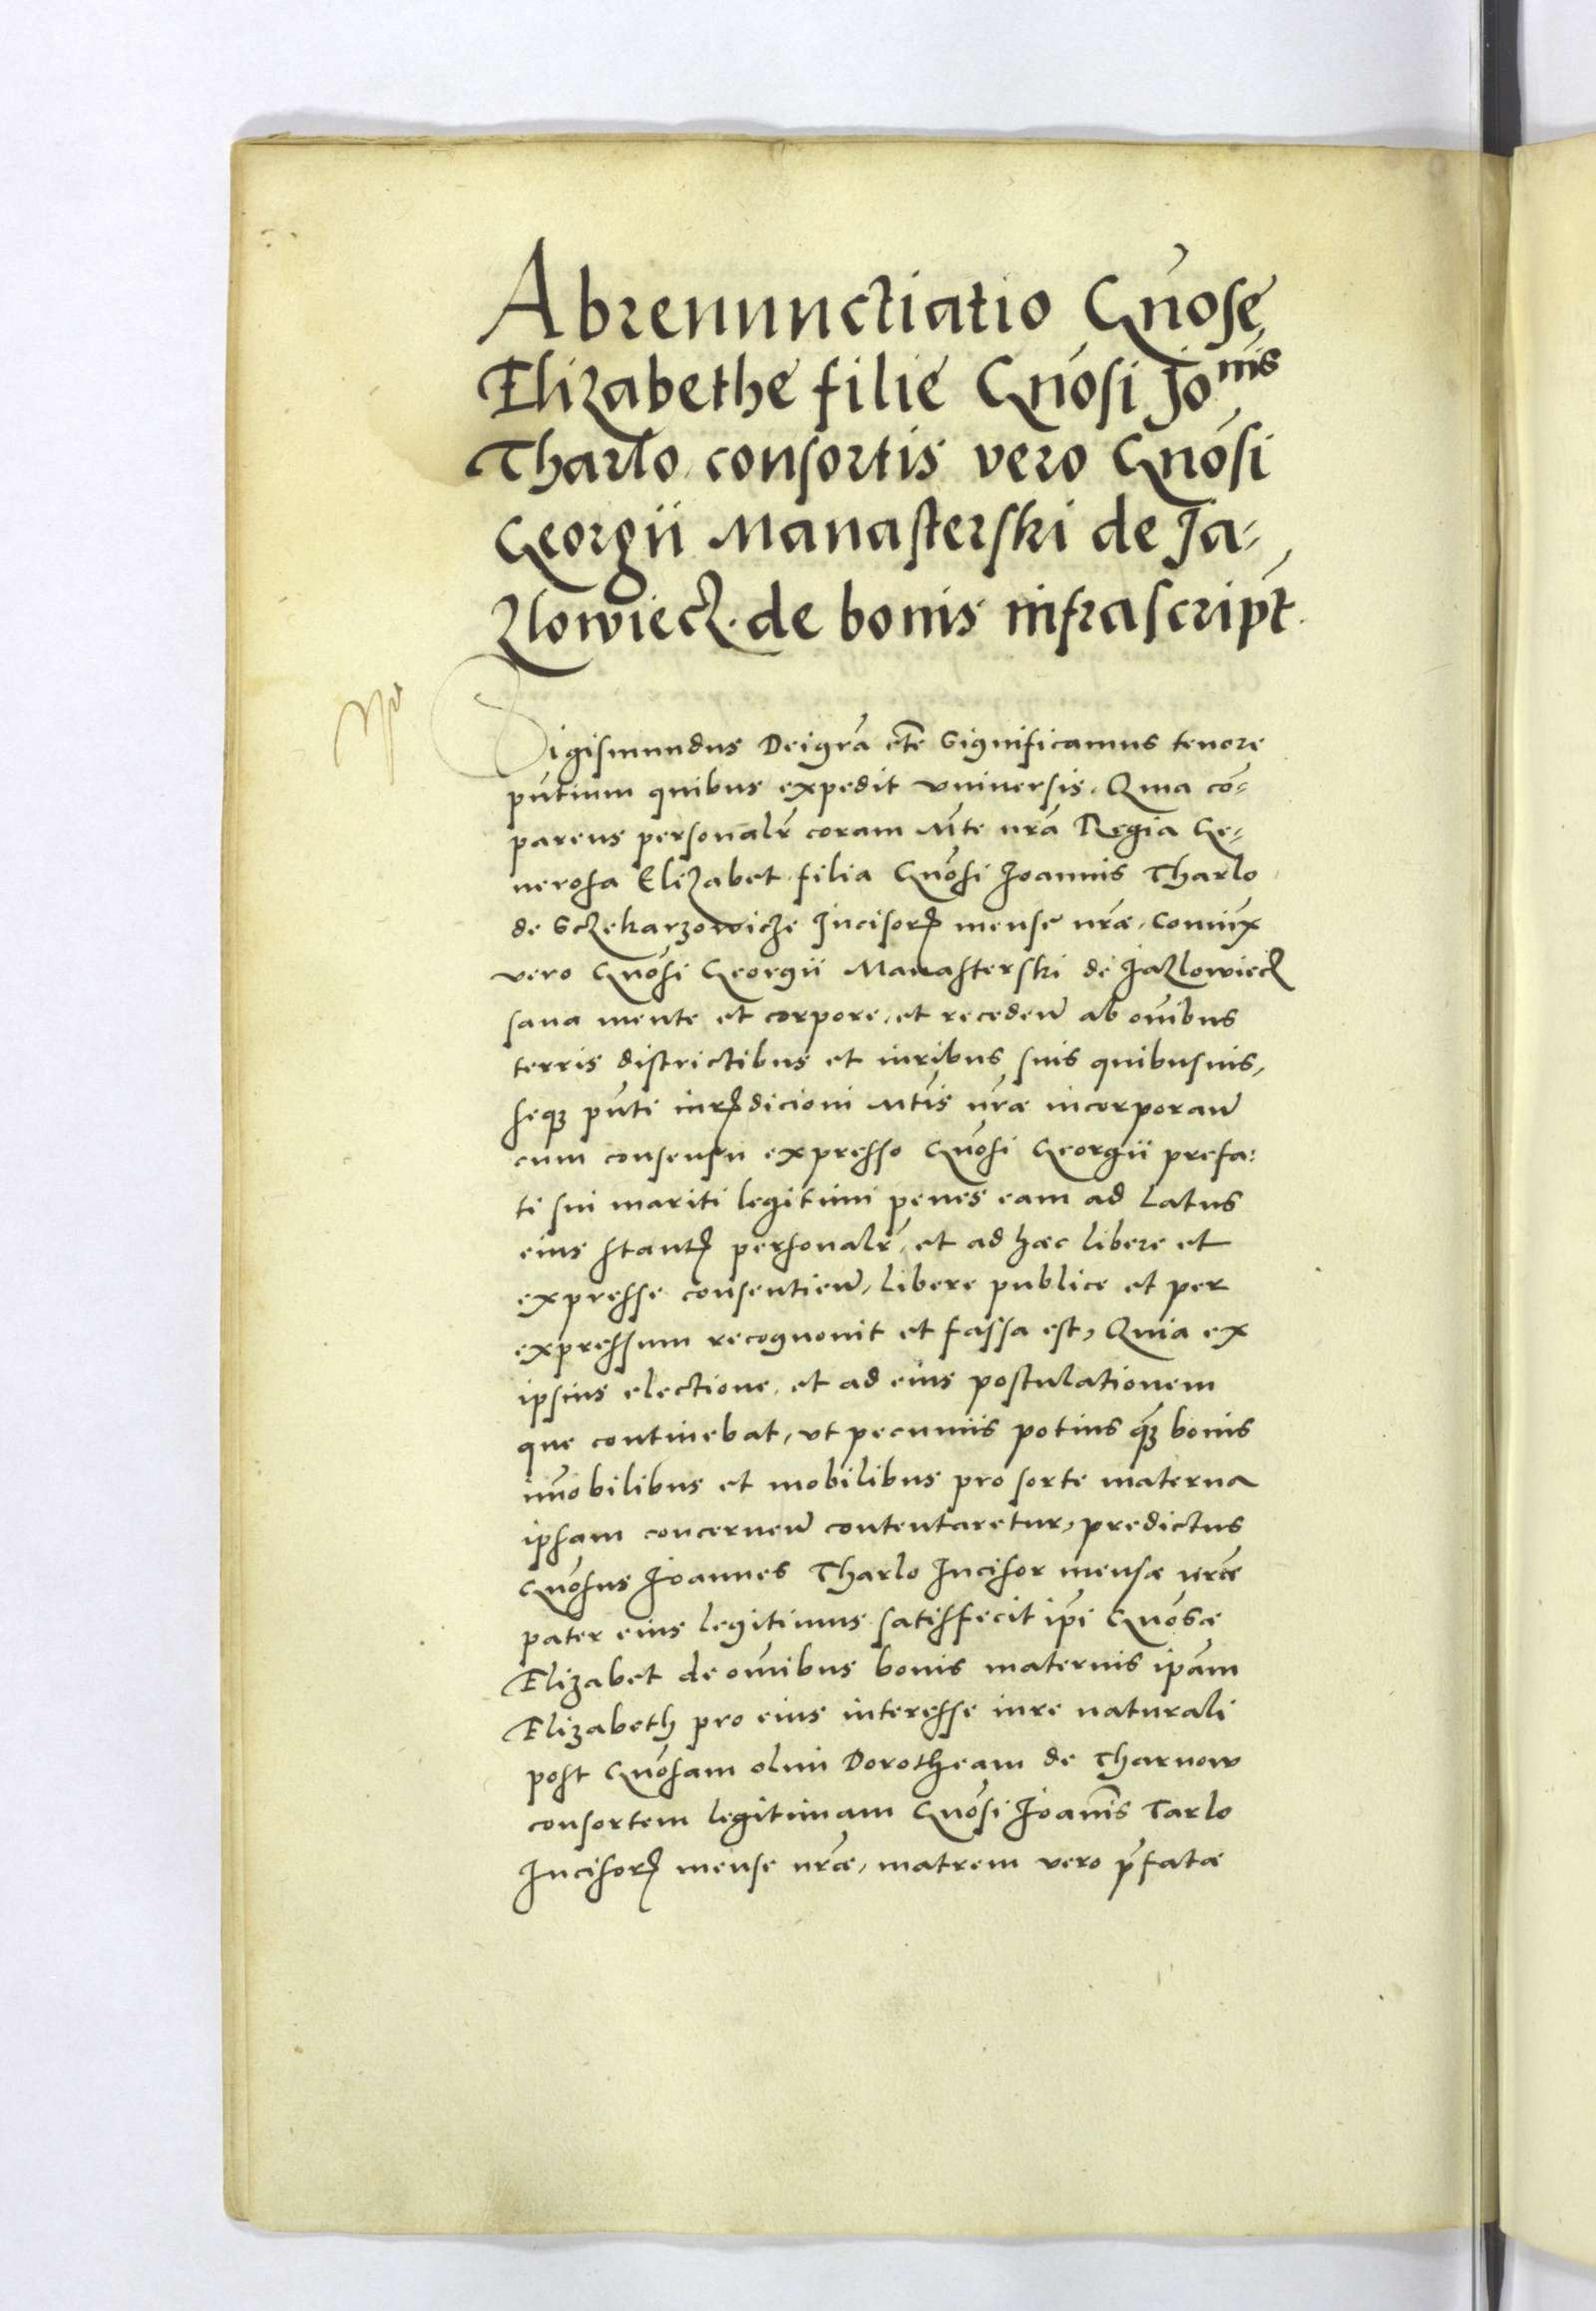 Abrenunctiatio Gn̄ose
Elizabethe filie Gn̄osi Jo^nis
Tharlo consortis vero Gn̄osi
Georgii Manasterski de Ja-
zlowiecz de bonis infrascript̄.
Sigismundus Dei gr̄a etc̄ Significamus tenore
pn̄tium quibus expedit vniuersis. Quia cō-
parens personalr̄ coram Mt̄e nr̄a Regia Ge-
nerosa Elizabet filia Gn̄osi Joannis Tharlo
de Sczekarzowicze Incisorꝭ mense nr̄æ, Coniūx
vero Gn̄osi Georgii Manasterski de Jazlowiecz
sana mente et corpore, et recedeñ ab om̄ibus
terris districtibus et iuribus suis quibusuis,
seqꝫ pn̄ti iurꝭdicioni Mt̄is nr̄æ incorporañ
cum consensu expresso Gn̄osi Georgii prefa-
ti sui mariti legitimi penes eam ad latus
eius stantꝭ personalr̄, et ad hæc libere et
expresse consentieñ, libere publice et per
expressum recognouit et fassa est, Quia ex
ipsius electione, et ad eius postulationem
que continebat, vt pecuniis potius qꝫ̄ bonis
im̄obilibus et mobilibus pro sorte materna
ipsam concerneñ contentaretur, predictus
Gn̄osus Joannes Tharlo Incisor mensæ nr̄æ
pater eius legitimus satisfecit ip̄i Gn̄osæ
Elizabet de om̄ibus bonis maternis ip̄am
Elizabeth pro eius interesse iure naturali
post Gn̄osam olim Dorotheam de Tharnow
consortem legitimam Gn̄osi Joan̄is Tarlo
Incisorꝭ mense nr̄æ, matrem vero p̄fatæ